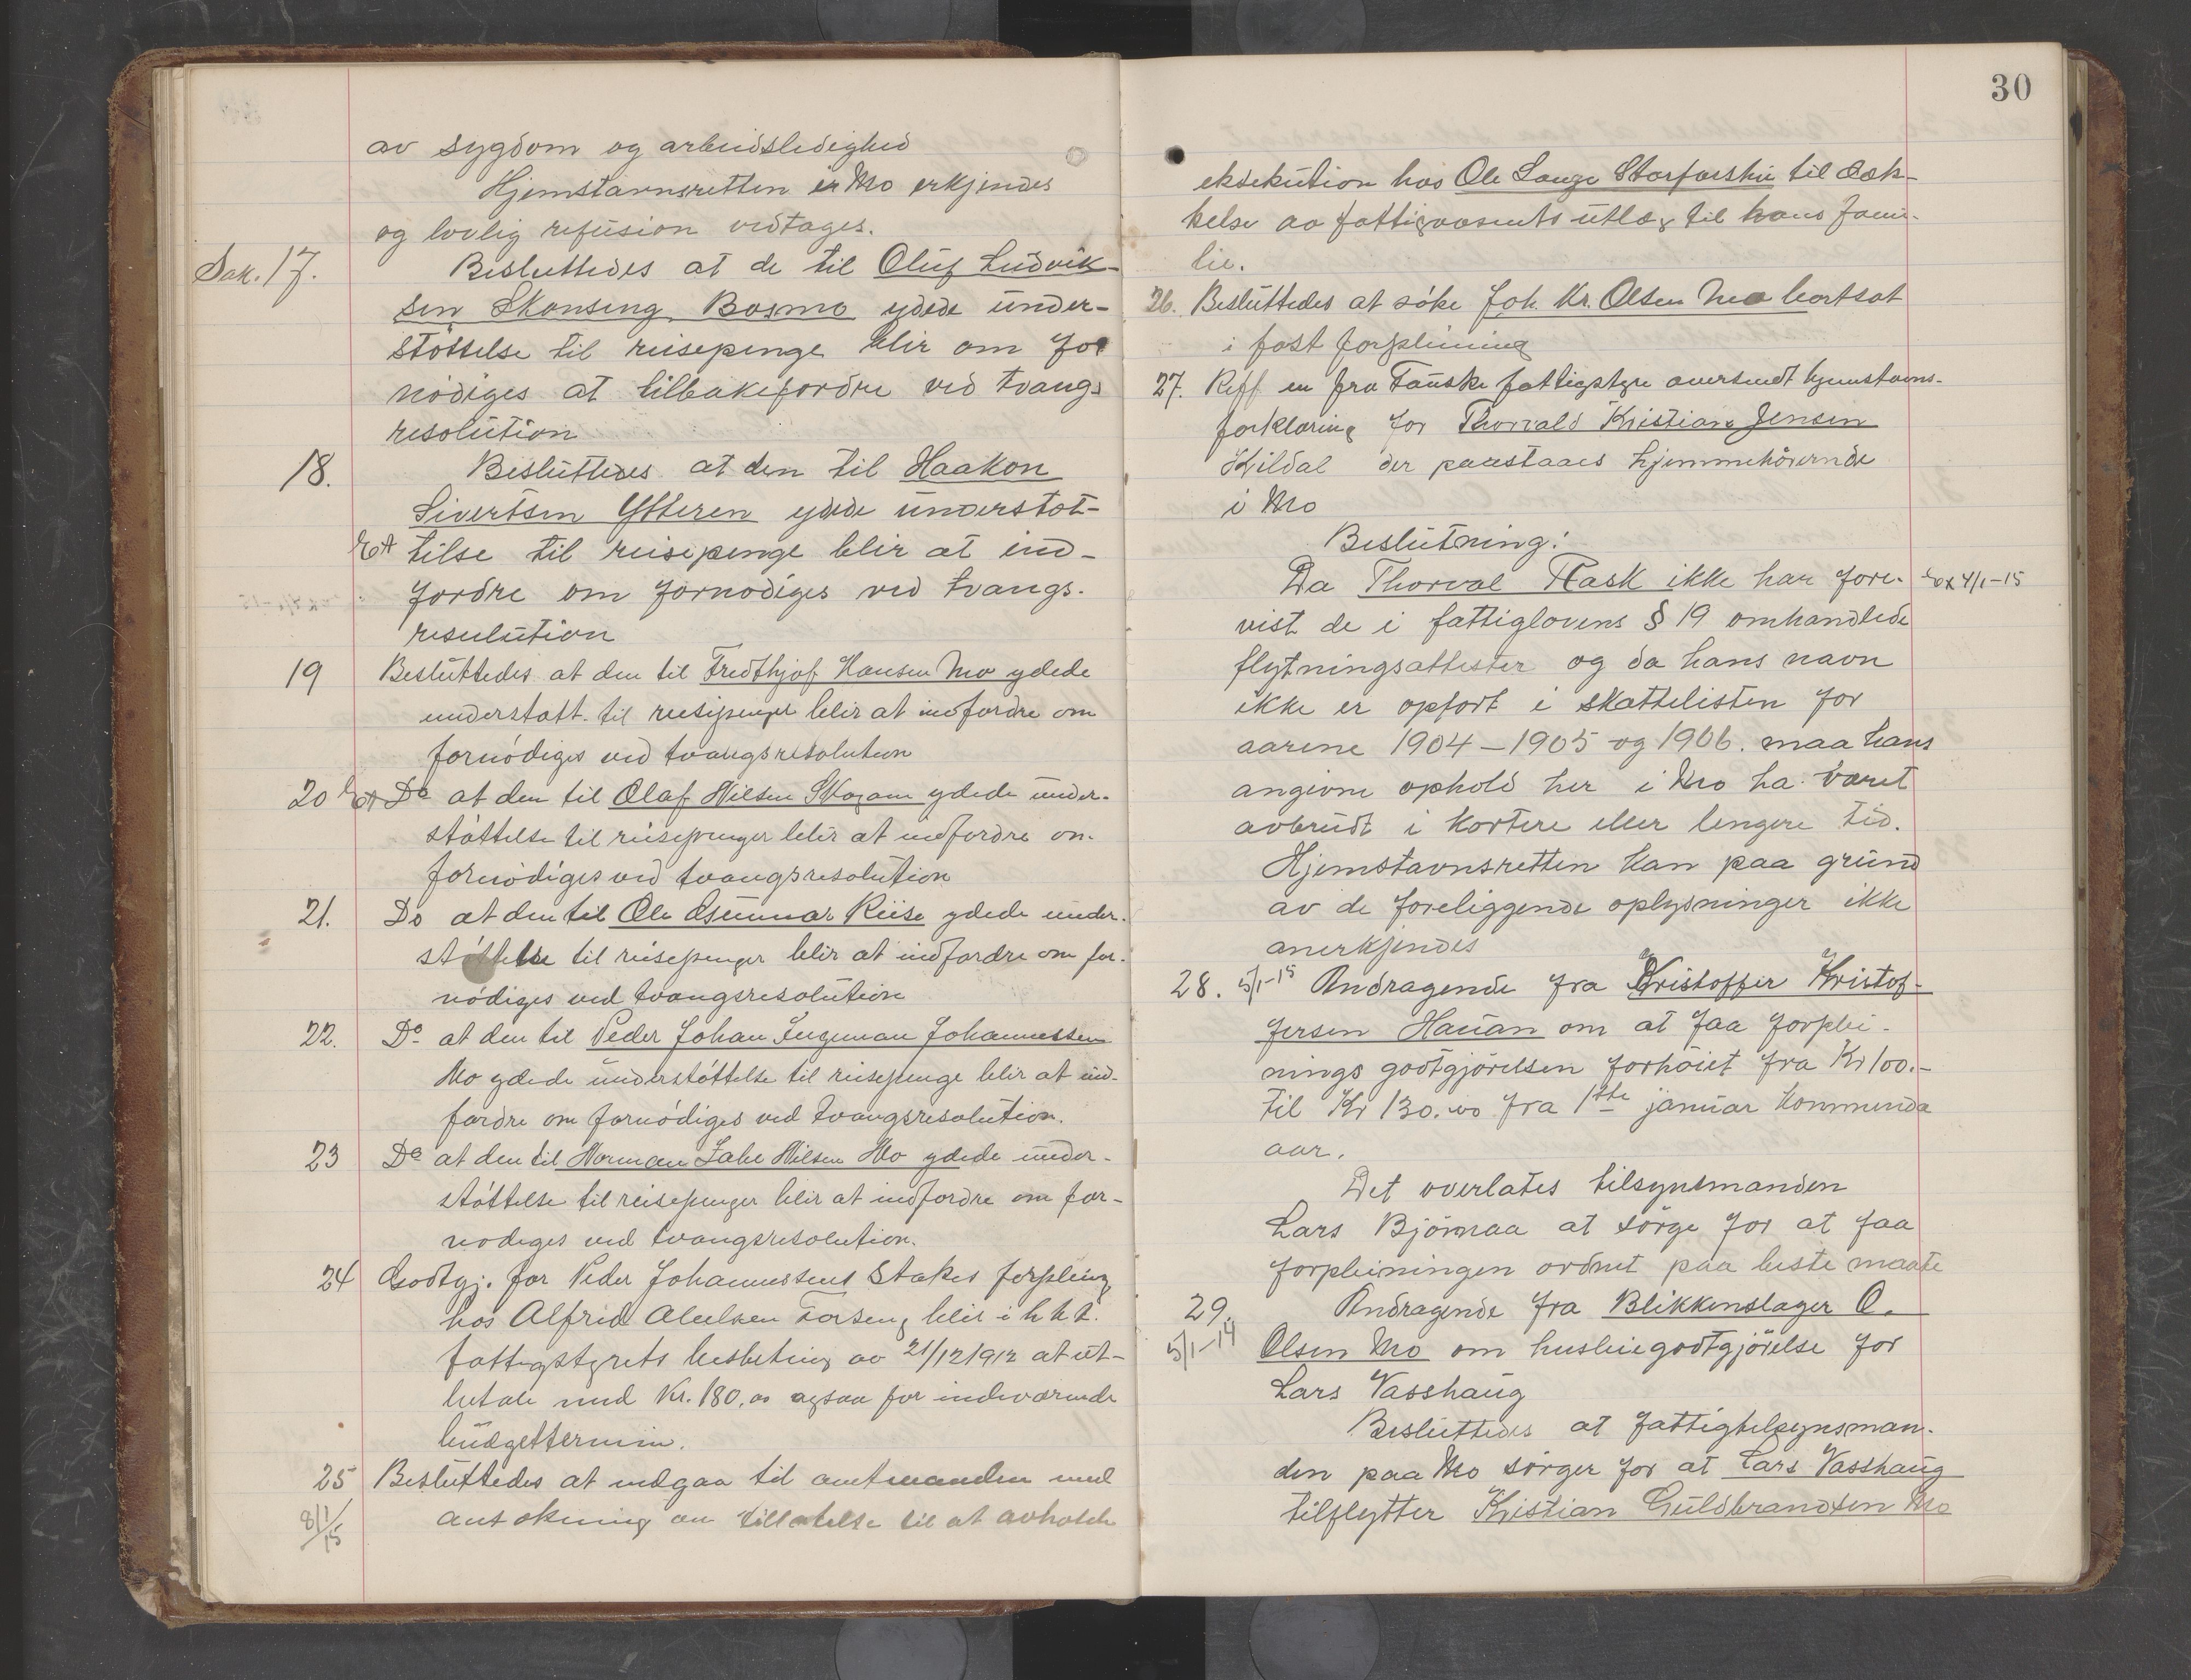 av sygdom og arbeidsledighed
Hjemstavnsretten er Mo erkjendes
og lovlig refusion vedtages.
Sak. 17. Besluttedes at de til Oluf Ludvik-
sen Skonseng, Bosmo ydede under-
støttelse til reisepenge blir om for
nødiges at tilbakefordre ved tvangs
resolution
18. Besluttedes at den til Haakon
Sivertsen Ytteren ydede understøt-
telse til reisepenge blir at ind-
fordre om fornødiges ved tvangs.
resulution
19 Besluttedes at den til Fredthjof Hansen Mo ydede
understøtt. til reisepenger blir at indfordre om
fornødiges ved tvangsresolution
20 Do at den til Olaf Nilsen ydede under-
støttelse til reisepenger blir at indfordre om
fornødiges ved tvangsresolution
21. Do at den til Ole Gunnar Riise ydede under-
støttelse til reisepenger blir at indfordre om for-
nødiges ved tvangsresolution
22. Do at den til Peder Johan Ingeman Johannessen
Mo ydede understøttelse til reisepenge blir at ind-
fordre om fornødiges ved tvangsresolution.
23 Do at den til Norman Nilsen Mo ydede under-
støttelse til reisepenger blir at indfordre om for-
nødiges ved tvangsresolution.
24 Godtgj. for Peder Johannessens Stakes forpleining
hos Alfred blir i h.h.t.
fattigstyrets beslutning av 21/12 1912 at ut-
betale med Kr. 180,00 ogsaa for indeværende
budgettermin.
25 Besluttedes at indgaa til amtmanden med
8/1/15 ansøkning om tillatelse til at avholde
30
eksekution hos Ole Lange Storforshei til dæk-
kelse av fattigvæsenets utlæg til hans fami-
lie.
26. Besluttedes at søke Joh. Kr. Olsen Mo bortsat
i fast forpleining
27. Reff. en fra Fauske fattigstyre oversendt hjemstavns-
forklaring for Thorvald Kristian Jensen
Kildal der paastaaes hjemmehørende
i Mo
Beslutning:
Da Thorval Rask ikke har fore- 4/1-15
vist de i fattiglovens § 19 omhandlede
flytningsattester og da hans navn
ikke er opført i skattelisten for
aarene 1904-1905 og 1906. maa hans
angivne ophold her i Mo ha været
avbrudt i kortere eller lengere tid.
Hjemstavnsretten kan paa grund
av de foreliggende oplysninger ikke
anerkjendes
28. 5/1-15 Andragende fra Kristoffer Kristof-
fersen Hauan om at faa forplei-
nings godtgjørelsen forhøiet fra Kr 100.-
til Kr 130.00 fra 1ste januar kommende
aar.
Det overlates tilsynsmanden
Lars Bjørnaa at sørge for at faa
forpleiningen ordnet paa beste maate
29. Andragende fra Blikkenslager O.
5/1-14 Olsen Mo om husleiegodtgjørelse for
Lars Vasshaug
Besluttedes at fattigtilsynsman-
den paa Mo sørger for at Lars Vasshaug
tilflytter Kristian Guldbrandsen Mo